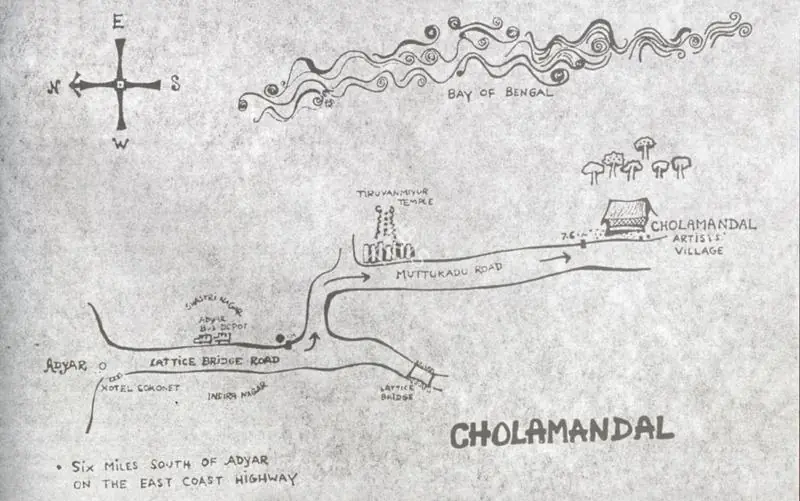 E
N
S
W
BAY OF BENGAL
TIRUVANMIYUR
TEMPLE
7.6
CHOLAMANDAL
ARTISTS'
VILLAGE
MUTTUKADU ROAD
SHASTRI NAGAR
ADYAR
BUS DEPOT
LATTICE BRIDGE ROAD
ADYAR
HOTEL CORONET
INDIRA NAGAR
LATTICE
BRIDGE
CHOLAMANDAL
• SIX MILES SOUTH OF ADYAR
ON THE EAST COAST HIGHWAY